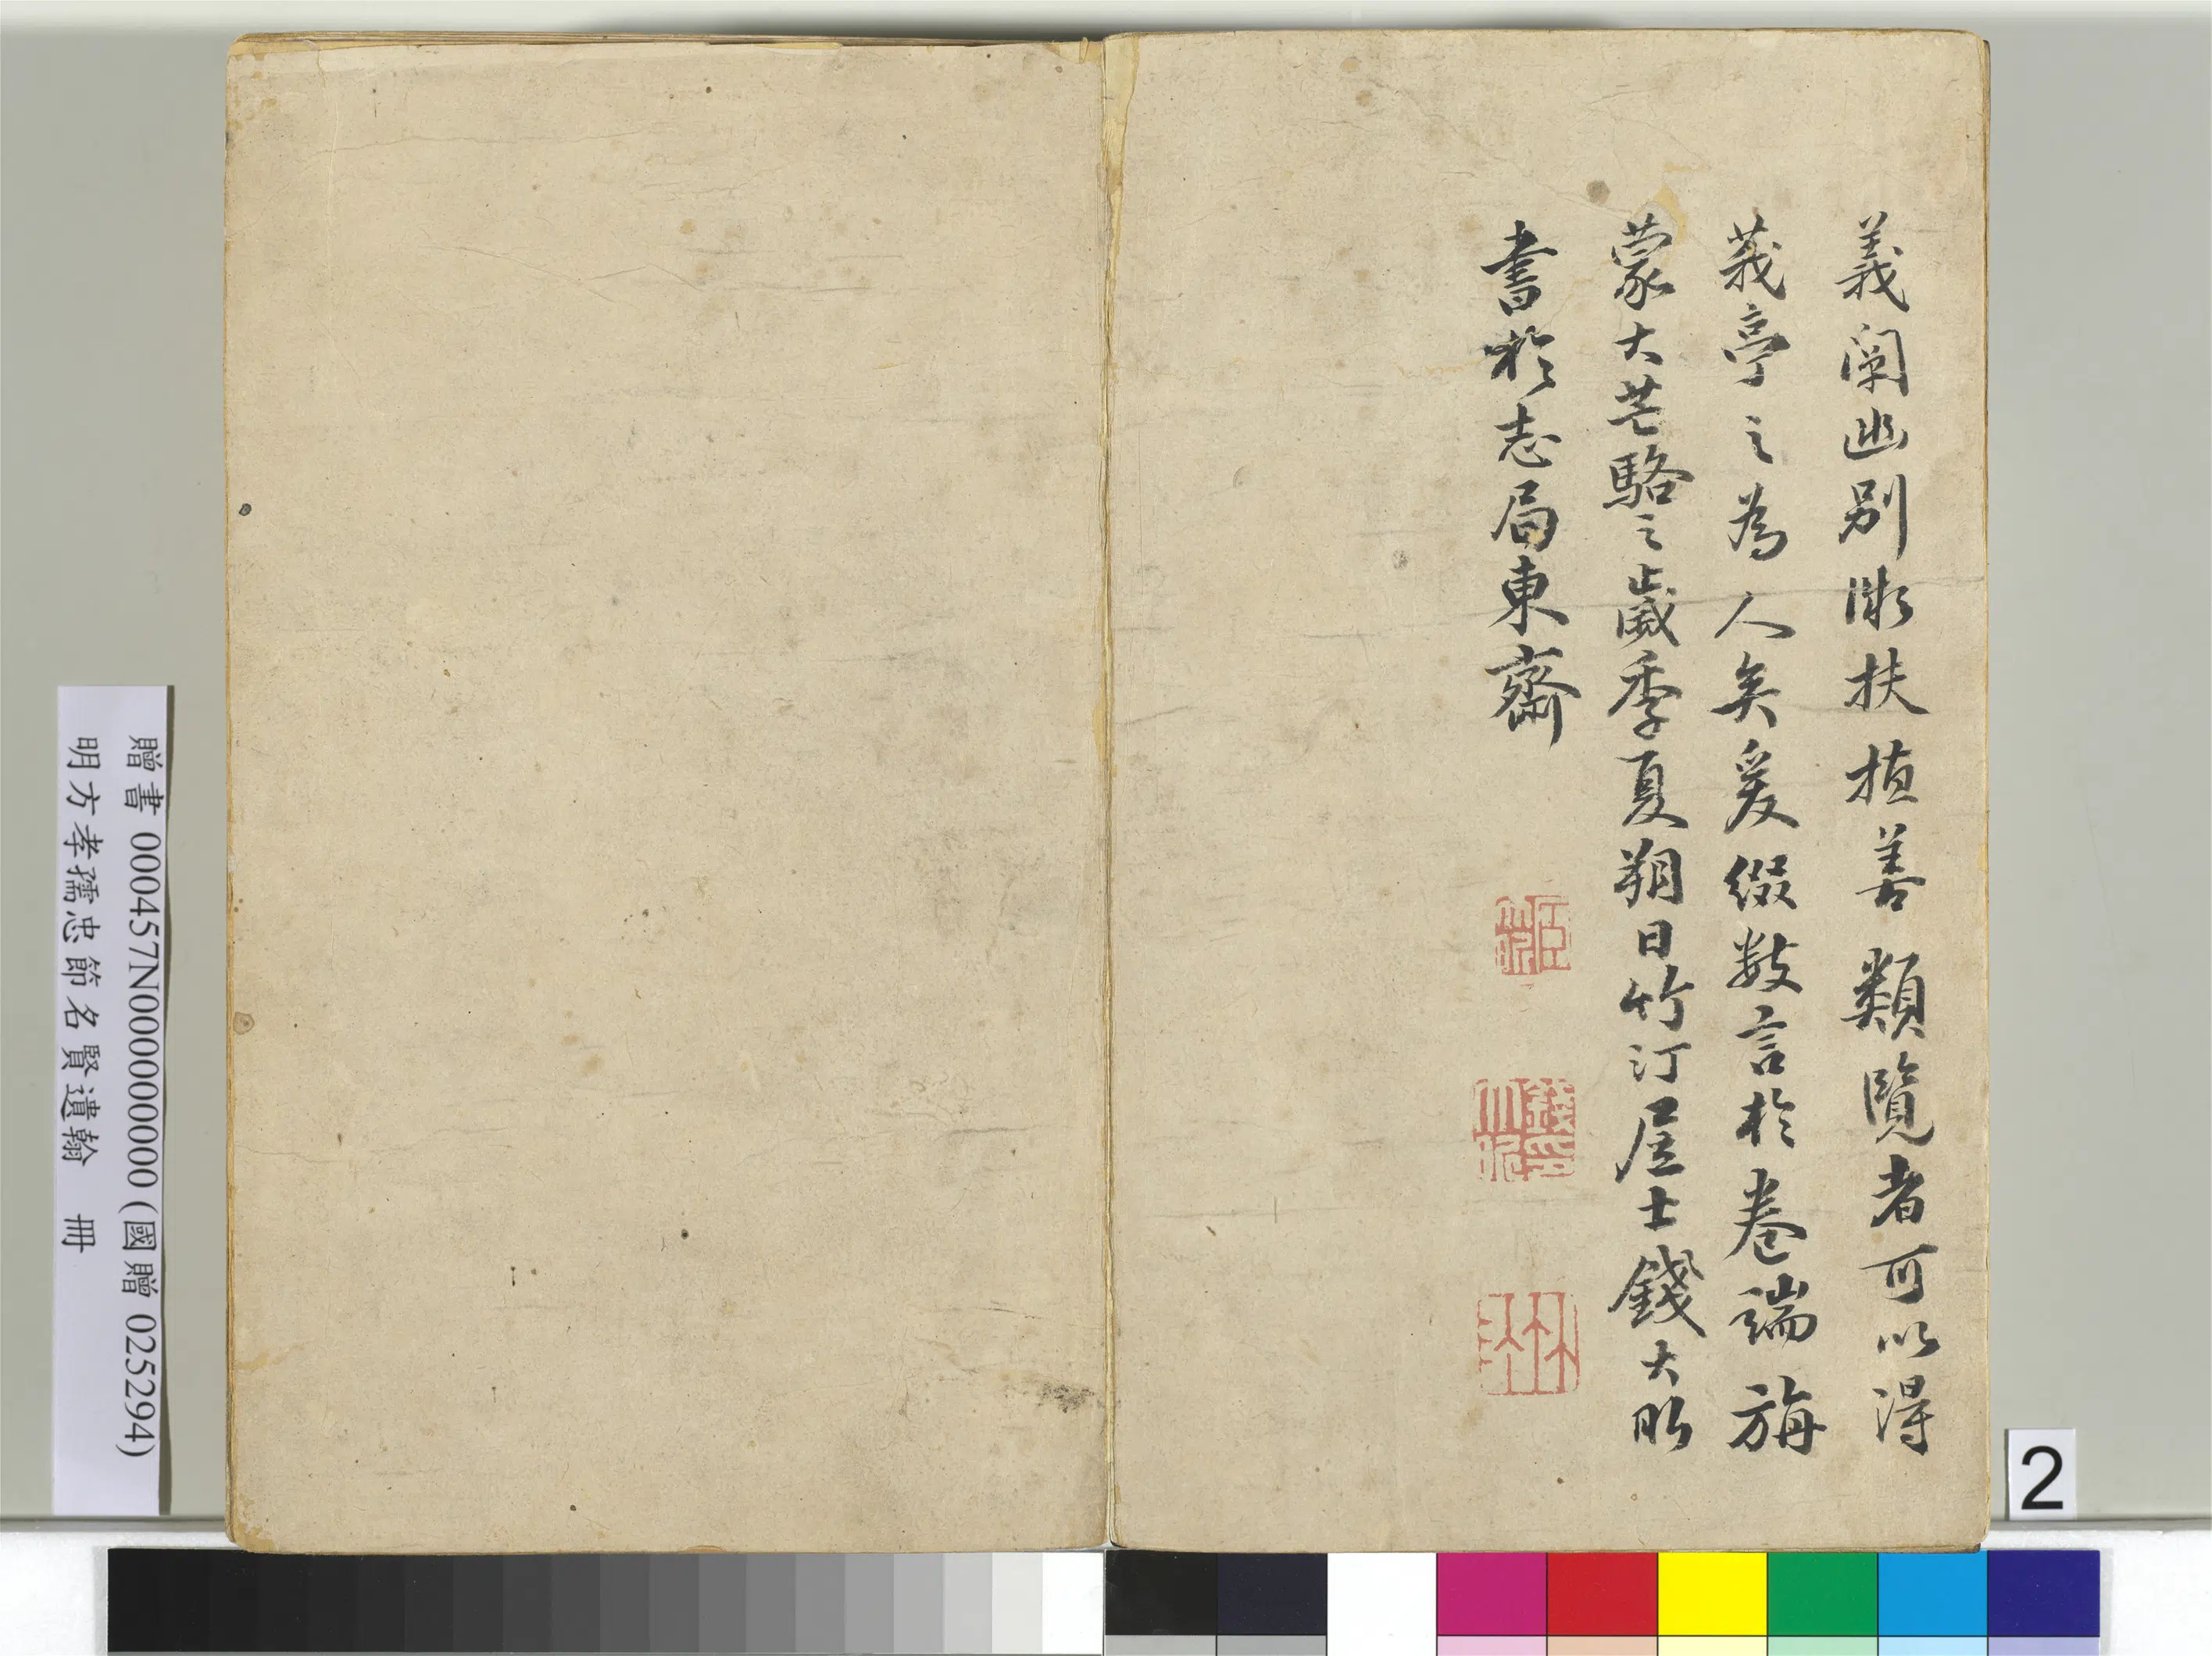 義闡幽別微扶植善類覽者可以得
莪亭之為人矣爰綴數言於卷端旃
蒙大芒駱之歲季夏朔日竹汀居士錢大昕
書於志局東齋
臣
錢印大昕
竹汀
贈書 000457N000000000 (國贈 025294)
明方孝孺忠節名賢遺翰 冊
2